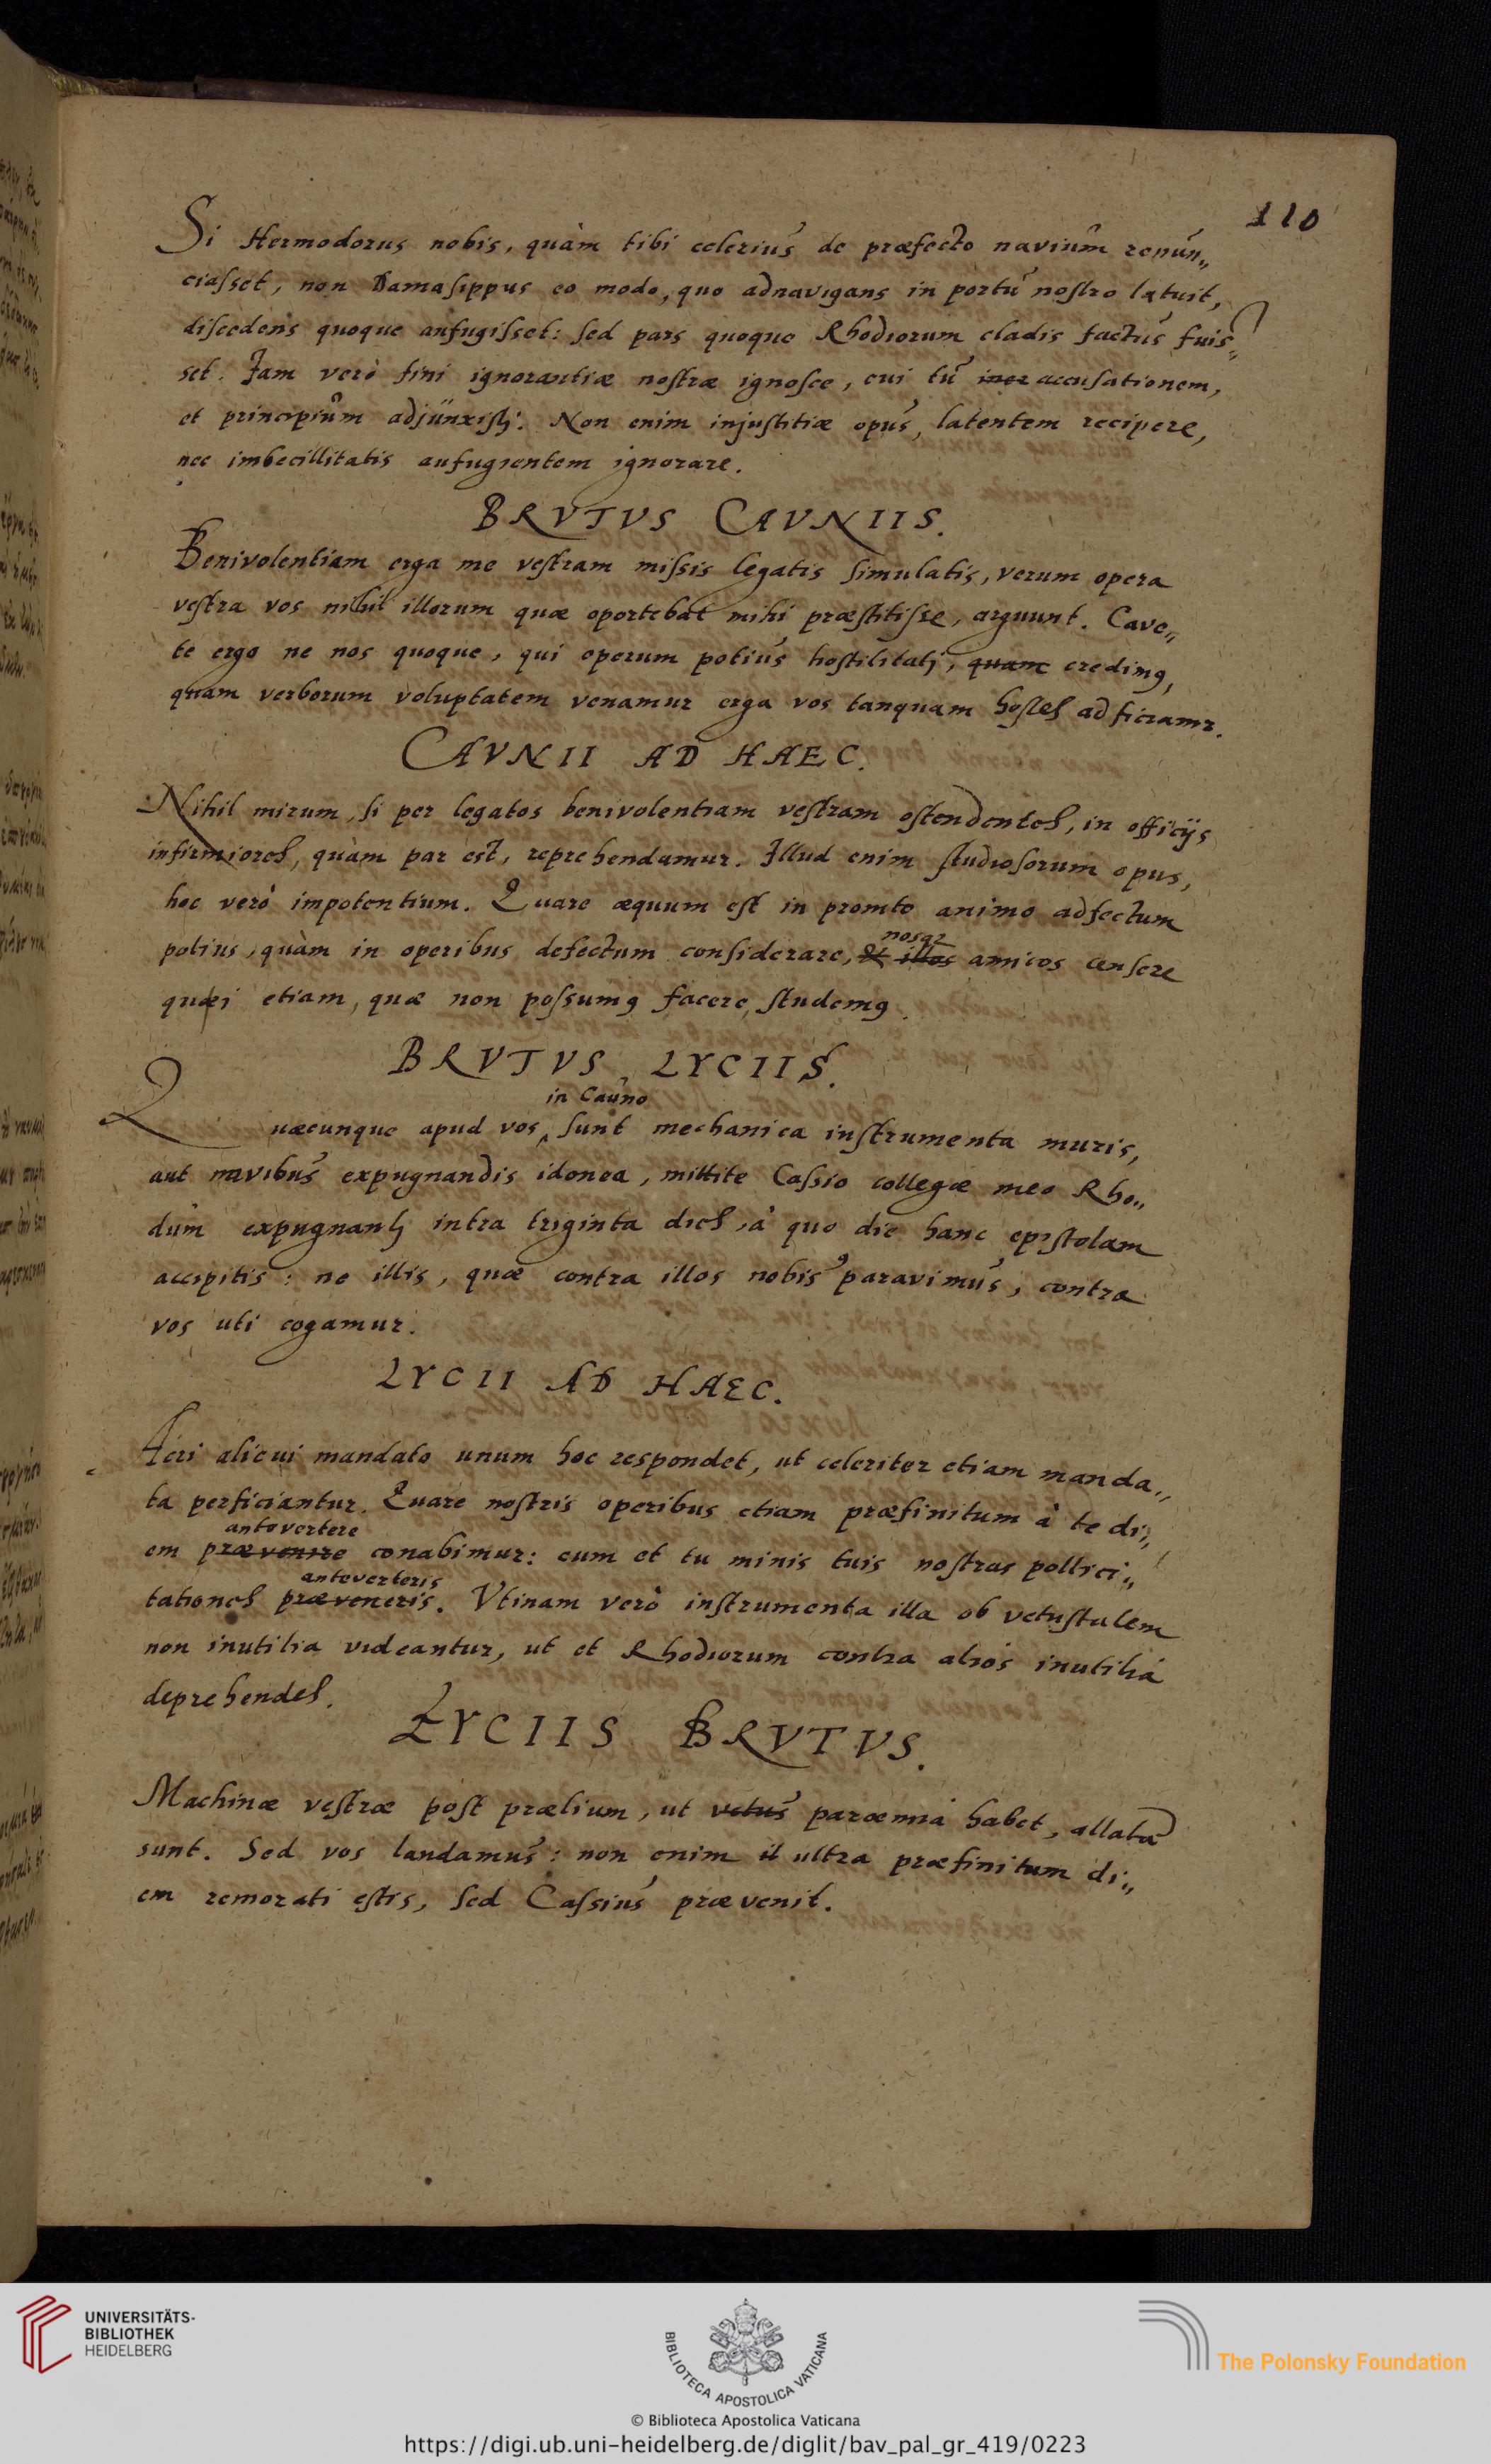 110
Si Hermodorus nobis, quàm tibi celerius de præfecto navium renun„
ciasset, non Damasippus eo modo, quo adnavigans in portu nostro latuit,
discedens quoque aufugisset: sed pars quoque Rhodiorum cladis factus fuis„
set. Jam verò fini ignorantiæ nostræ ignosce, cui tu accusationem,
et principium adjunxisti: Non enim injustitiæ opus, latentem recipere,
nec imbecillitatis aufugientem ignorare.
BRVTVS CAVNIIS.
Benivolentiam erga me vestram missis legatis simulatis, verum opera
vestra vos nihil illorum quæ oportebat mihi præstitisse, arguunt. Cave„
te ergo ne nos quoque, qui operum potius hostilitati, quam credimꝰ,
quam verborum voluptatem venamur erga vos tanquam hostes adficiamr.
CAVNII AD HAEC.
Nihil mirum, si per legatos benivolentiam vestram ostendentes, in officijs
infirmiores, quàm par est, reprehendamur. Illud enim studiosorum opus,
hoc verò impotentium. Quare æquum est in promto animo adfectum
nosqz
potius, quàm in operibus defectum considerare, & illos amicos censere
qui etiam, quæ non possumꝰ facere, studemꝰ.
BRVTVS LYCIIS.
in Cauno
Quæcunque apud vos sunt mechanica instrumenta muris,
aut navibus expugnandis idonea, mittite Cassio collegæ meo Rho„
dum expugnanti intra triginta dies, à quo die hanc epistolam
accipitis: ne illis, quæ contra illos nobis paravimus, contra
vos uti cogamur.
LYCII AD HAEC.
Acri alicui mandato unum hoc respondet, ut celeriter etiam manda„
ta perficiantur. Quare nostris operibus etiam præfinitum à te di„
antevertere
em prævenire conabimur: cum et tu minis tuis nostras pollici„
anteverteris
tationes præveneris. Vtinam verò instrumenta illa ob vetustatem
non inutilia videantur, ut et Rhodiorum contra alios inutilia
deprehendes.
LYCIIS BRVTVS.
Machinæ vestræ post prælium, ut vetus parœmia habet, allatæ
sunt. Sed vos laudamus: non enim ultra præfinitum di„
em remorati estis, sed Cassius prævenit.
UNIVERSITÄTS-
BIBLIOTHEK
HEIDELBERG
BIBLIOTECA APOSTOLICA VATICANA
The Polonsky Foundation
© Biblioteca Apostolica Vaticana
https://digi.ub.uni-heidelberg.de/diglit/bav_pal_gr_419/0223